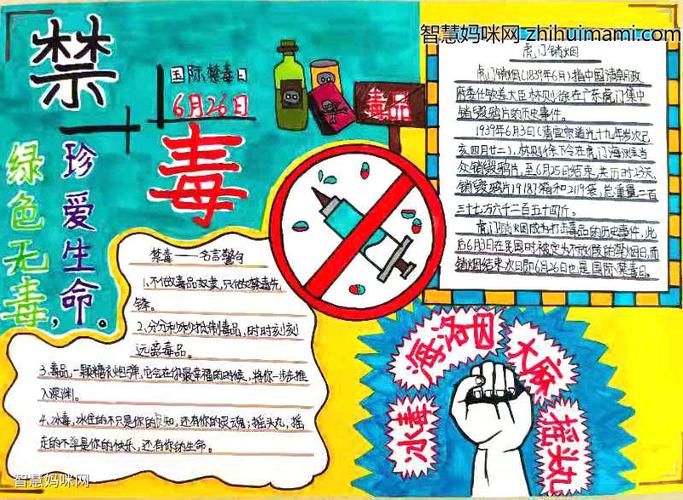 智慧妈咪网 zhihuimami.com
禁毒
国际禁毒日
6月26日
毒品
珍爱生命。
绿色无毒,
虎门销烟
虎门销烟(1839年6月)指中国清朝政
府委任钦差大臣林则徐在广东虎门集中
销毁鸦片的历史事件。
1939年6月3日(清宣宗道光十九年岁次己
亥四月廿二),林则徐下令在虎门海滩当
众销毁鸦片,至6月25日结束,共历时23天,
销毁鸦片19187箱和2119袋,总重量二百
三十七万六千二百五十四斤。
虎门销烟成为打击毒品的历史事件,此
后6月3日在民国时被定为不放假的禁烟日,而
销烟结束次日即6月26日也是国际禁毒日。
禁毒——名言警句
1、不做毒品故妻,只做禁毒先
锋。
2、分分秒秒抵制毒品,时时刻刻
远离毒品。
3.毒品,一颗糖衣炮弹,它会在你最幸福的时候,将你一步步推
入深渊。
4、冰毒,冰住的不只是你的良知,还有你的灵魂;摇头丸,摇
走的不单是你的快乐,还有你的生命。
冰毒
海洛因
大麻
摇头丸
智慧妈咪网